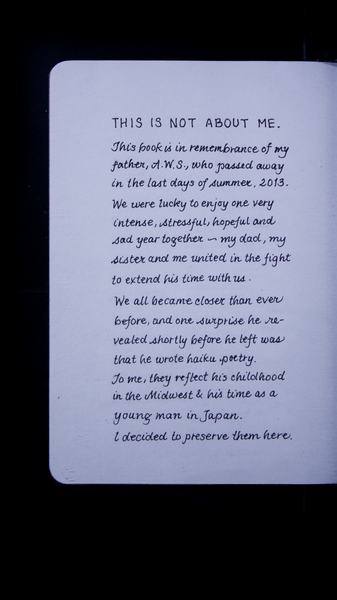 THIS IS NOT ABOUT ME.
This book is in remembrance of my
father, A.W.S., who passed away
in the last days of summer, 2013.
We were lucky to enjoy one very
intense, stressful, hopeful and
sad year together – my dad, my
sister and me united in the fight
to extend his time with us.
We all became closer than ever
before, and one surprise he re-
vealed shortly before he left was
that he wrote haiku poetry.
To me, they reflect his childhood
in the Midwest & his time as a
young man in Japan.
I decided to preserve them here.